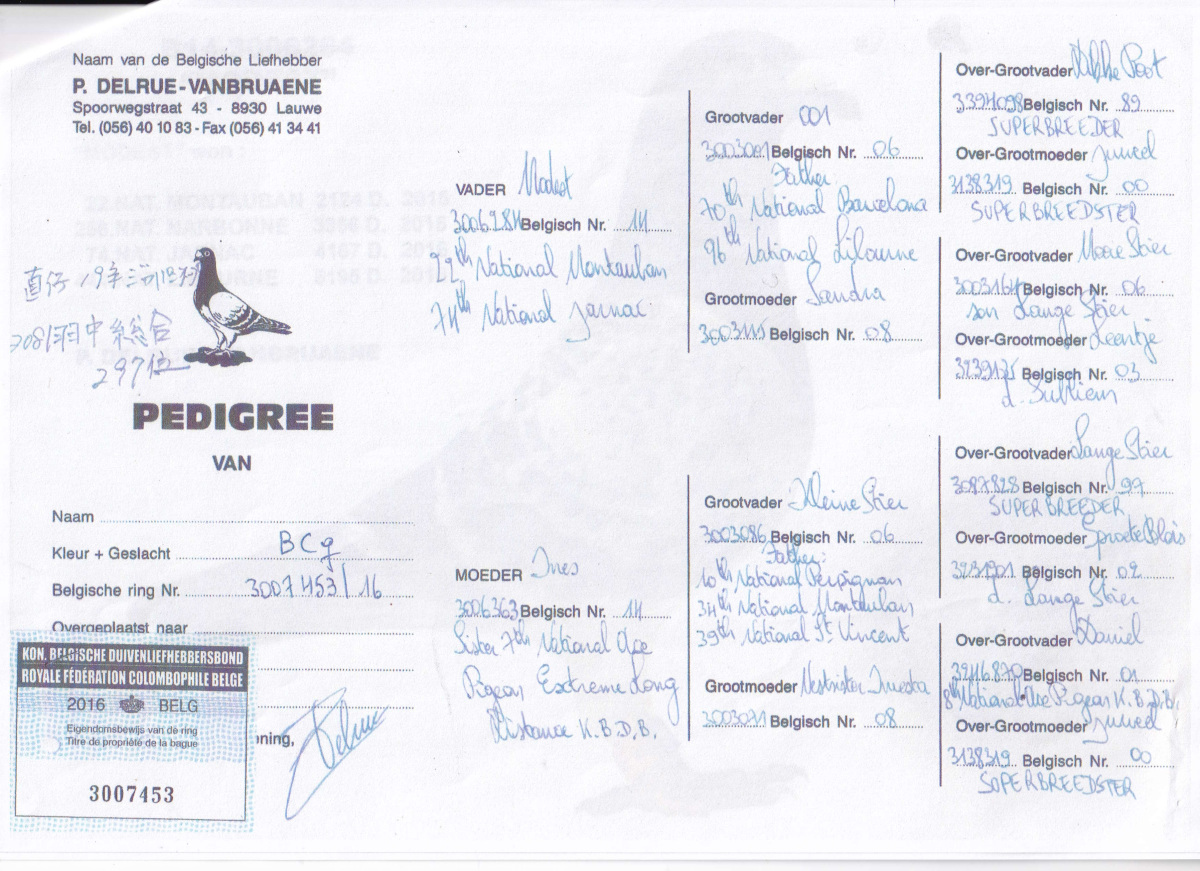 Naam van de Belgische Liefhebber
P. DELRUE-VANBRUAENE
Spoorwegstraat 43 - 8930 Lauwe
Tel. (056) 40 10 83 - Fax (056) 41 34 41
直仔
中綜合
297位
PEDIGREE
VAN
Naam
Kleur + Geslacht BC
Belgische ring Nr. 3007453/16
Overgeplaatst naar
KON. BELGISCHE DUIVENLIEFHEBBERSBOND
ROYALE FÉDÉRATION COLOMBOPHILE BELGE
2016 BELG
Eigendomsbewijs van de ring
Titre de propriété de la bague
3007453
oning,
Delrue
VADER Modest
3006284 Belgisch Nr. 14
22th National Montauban
74th National Jarnac
MOEDER Ines
3006363 Belgisch Nr. 14
Sister 7th National Ace
Pigeon Extreme Long
Distance K.B.D.B.
Grootvader 001
3003001 Belgisch Nr. 06
Father:
70th National Barcelona
96th National Libourne
Grootmoeder Sandra
3003115 Belgisch Nr. 08
Grootvader Kleine Stier
3003086 Belgisch Nr. 06
Father:
10th National Perpignan
34th National Montauban
39th National St Vincent
Grootmoeder Nestzister
3003071 Belgisch Nr. 08
Over-Grootvader Poot
3394098 Belgisch Nr. 89
SUPERBREEDER
Over-Grootmoeder Juweel
3138319 Belgisch Nr. 00
SUPERBREEDSTER
Over-Grootvader Mooie Stier
3003164 Belgisch Nr. 06
son Lange Stier
Over-Grootmoeder Leentje
3239175 Belgisch Nr. 03
d.
Over-Grootvader Lange Stier
3087828 Belgisch Nr. 99
SUPERBREEDER
Over-Grootmoeder
3231901 Belgisch Nr. 02
d. Lange Stier
Over-Grootvader Daniel
3246870 Belgisch Nr. 01
8th National Ace Pigeon K.B.D.B.
Over-Grootmoeder Juweel
3138319 Belgisch Nr. 00
SUPERBREEDSTER